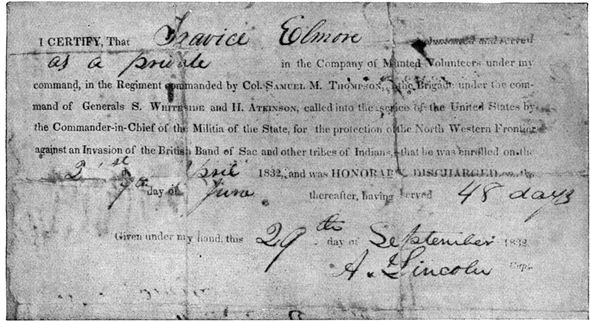 I CERTIFY, That Travice Elmore volunteered and served
as a private in the Company of Mounted Volunteers under my
command, in the Regiment commanded by Col. SAMUEL M. THOMPSON, in the Brigade under the com-
mand of Generals S. WHITESIDE and H. ATKINSON, called into the service of the United States by
the Commander-in-Chief of the Militia of the State, for the protection of the North Western Frontier
against an Invasion of the British Band of Sac and other tribes of Indians, that he was enrolled on the
21st April 1832, and was HONORABLY DISCHARGED on the
7th day of June thereafter, having served 48 days
Given under my hand, this 29th day of September 1832
A. Lincoln Capt.